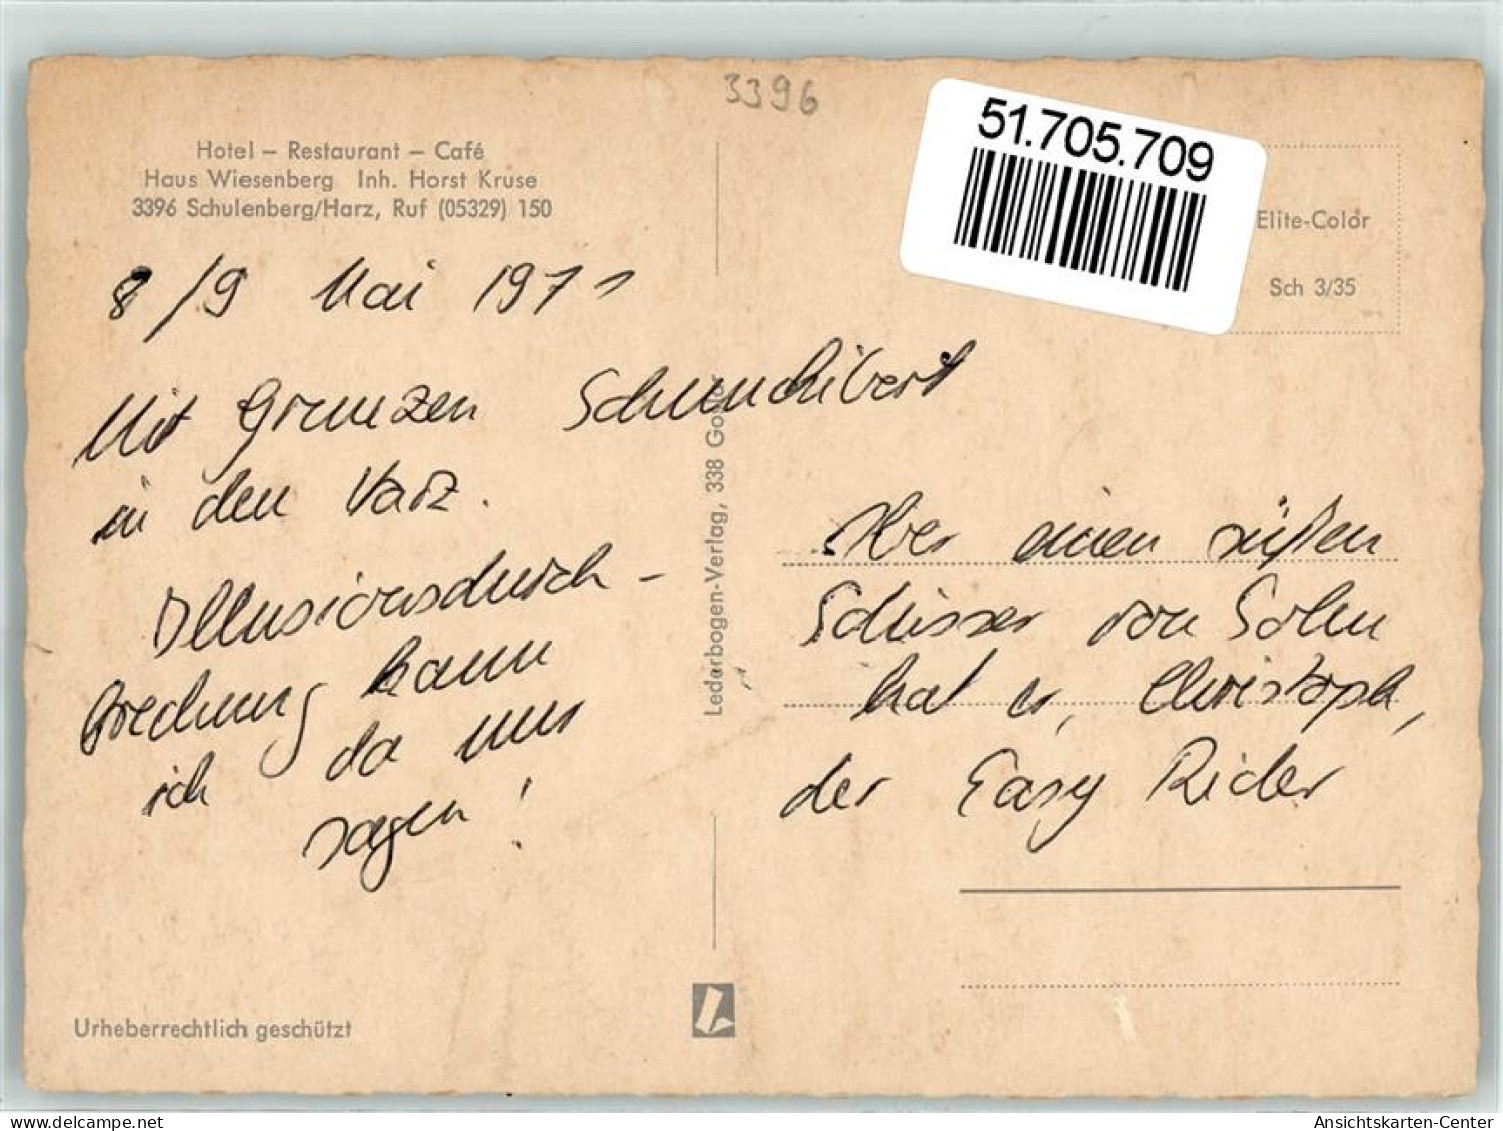 3396
51.705.709
Hotel – Restaurant – Café
Haus Wiesenberg Inh. Horst Kruse
3396 Schulenberg/Harz, Ruf (05329) 150
Elite-Color
Sch 3/35
8/9 Mai 1971
Mit
in den Harz.
Illusionsdurch-
brechung kann
ich da nur
sagen!
Lederbogen-Verlag, 338
Aber einen süßen
Schisser von Sohn
hat er, Christoph,
der Easy Rider
Urheberrechtlich geschützt
www.delcampe.net
Ansichtskarten-Center